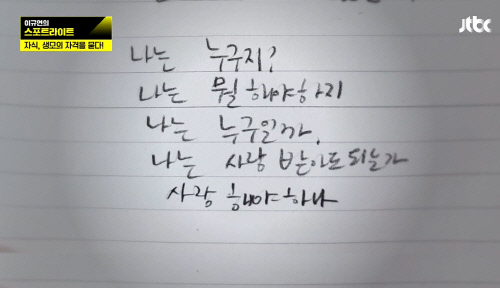 이규연의
스포트라이트
자식, 생모의 자격을 묻다!
jtbc
나는 누구지?
나는 뭘 해야하지
나는 누구일까,
나는 사랑 받아도 되는가
사랑 해야하나